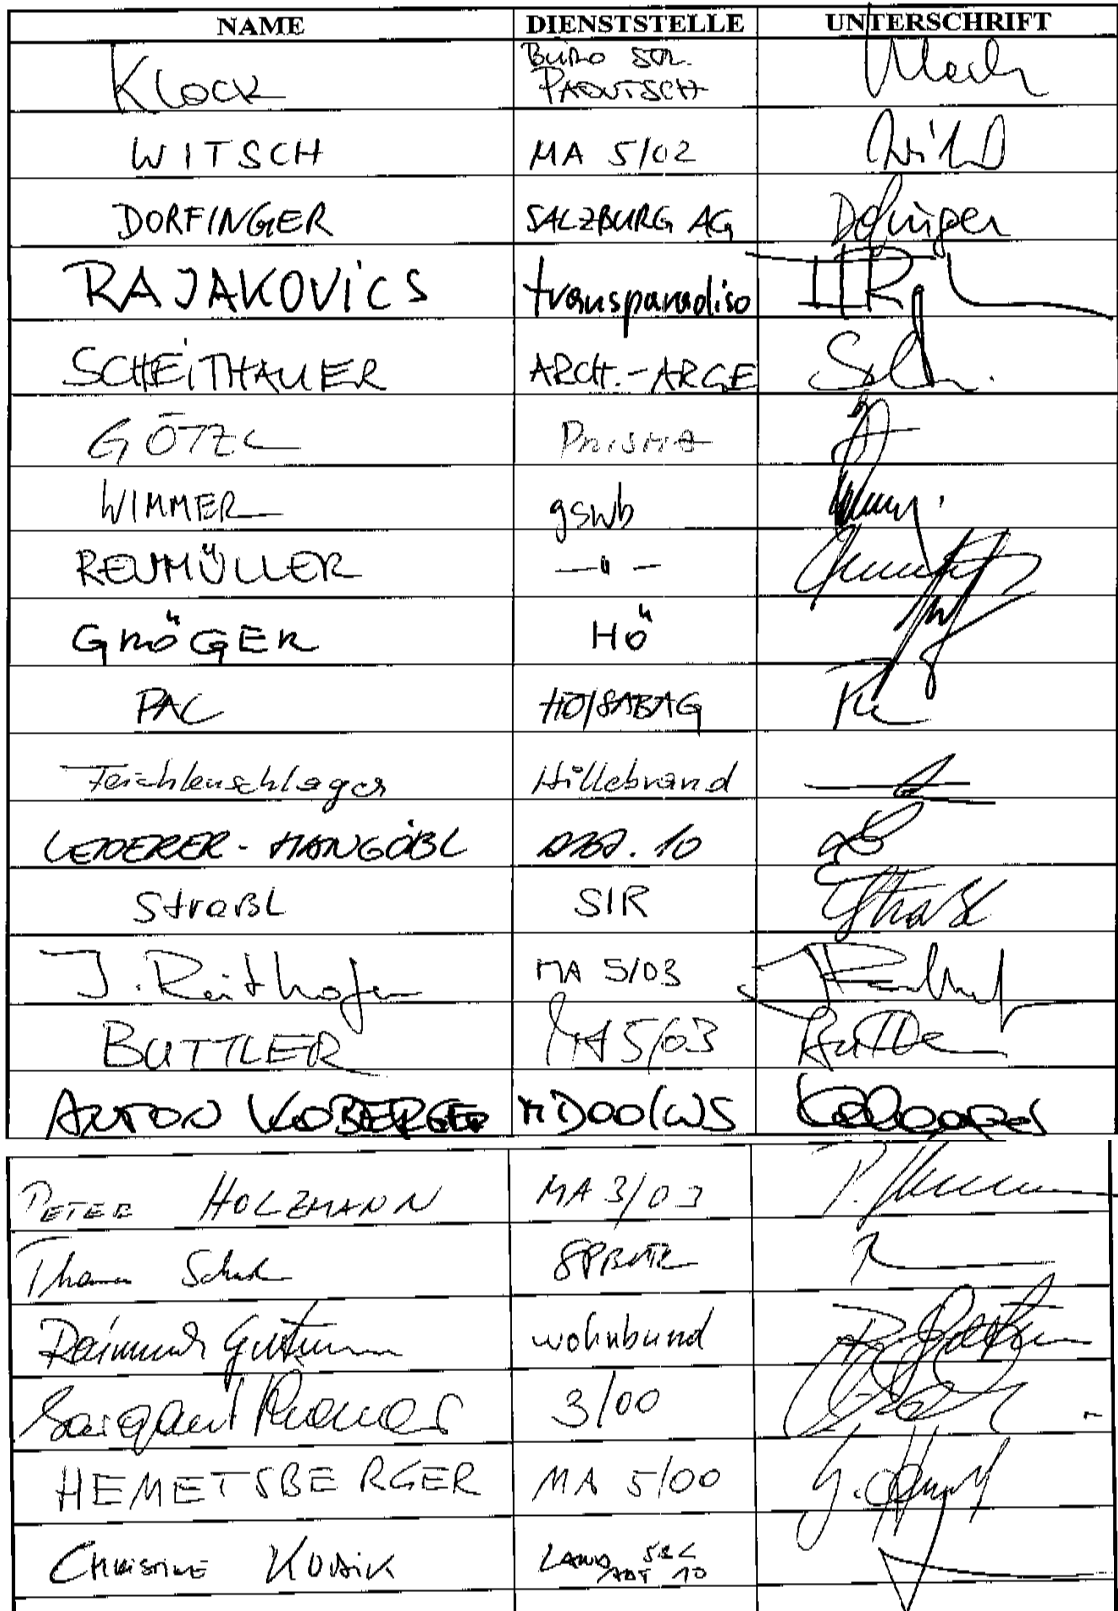 NAME DIENSTSTELLE UNTERSCHRIFT
Klock BÜRO STR. PADUTSCH
WITSCH MA 5/02
DORFINGER SALZBURG AG Dorfinger
RAJAKOVICS transparadiso
SCHEITHAUER ARCH.-ARGE
GÖTZL PRISMA
WIMMER gswb
REUMÜLLER —"—
GRÖGER HÖ
PAC HÖ/SABAG
Teichtenschlager Hillebrand
LEDERER-MANGÖBL ABT. 10
Straßl SIR Straßl
J. Reithofer MA 5/03
BUTTLER MA 5/03
ANTON KOBERGER MD00/WS
PETER HOLZMANN MA 3/03
Thomas
Raimund Gutmann wohnbund
Thomas 3/00
HEMETSBERGER MA 5/00
CHRISTINE LAND SBG ABT 10